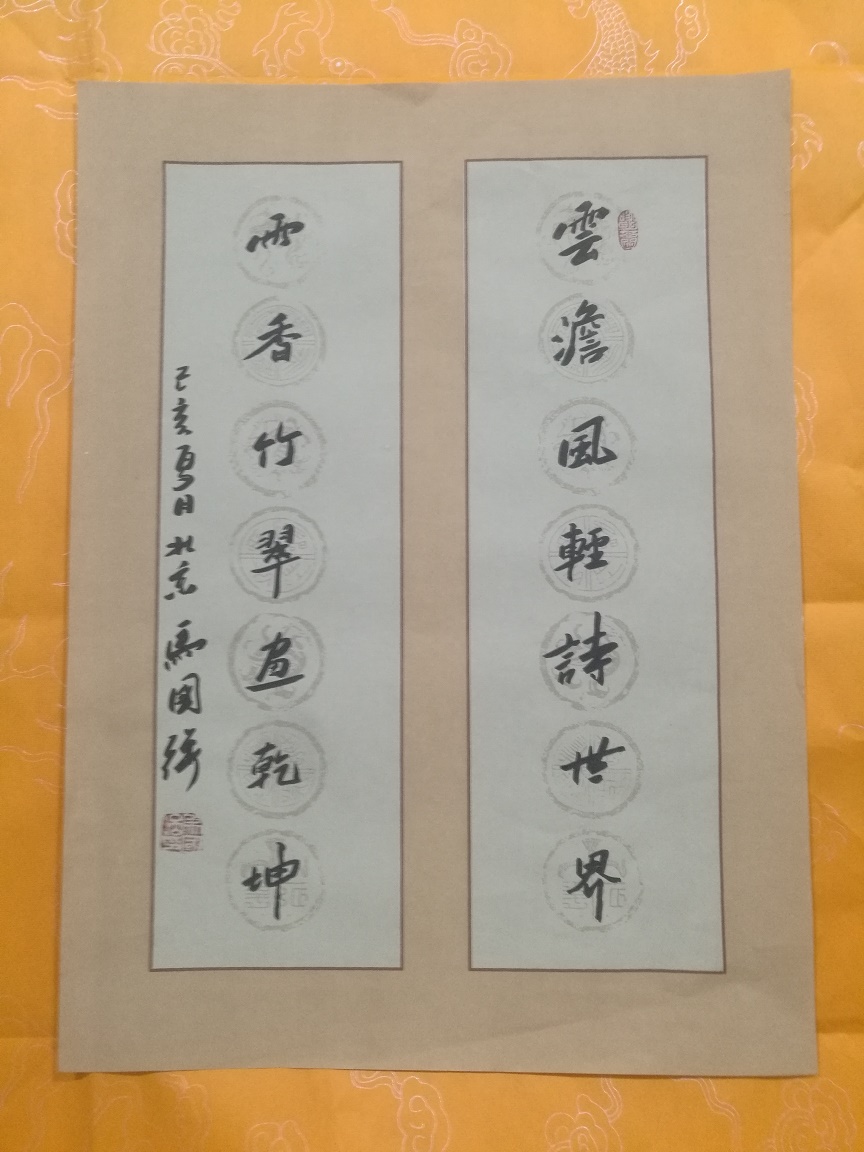 雲澹風輕詩世界
雪香竹翠画乾坤
己亥夏日北京馬国强